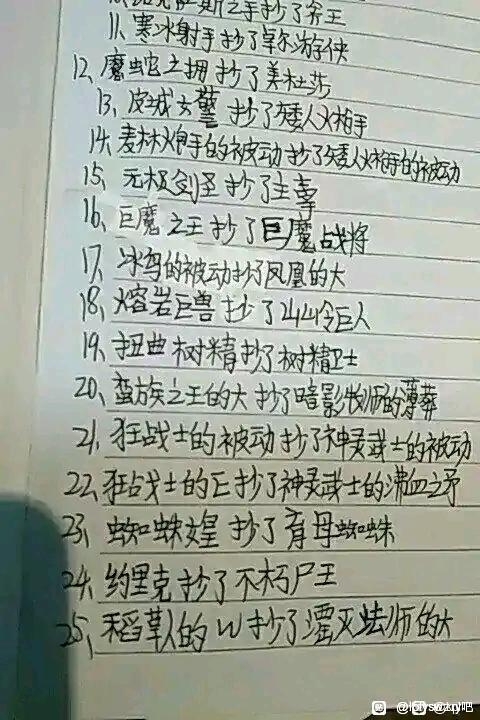 斯之手抄了斧王
11、寒冰射手抄了卓尔游侠
12、魔蛇之拥抄了美杜莎
13、皮城女警抄了矮人火枪手
14、麦林炮手的被动抄了矮人火枪手的被动
15、无极剑圣抄了主宰
16、巨魔之王抄了巨魔战将
17、冰鸟的被动抄了凤凰的大
18、熔岩巨兽抄了山岭巨人
19、扭曲树精抄了树精卫士
20、蛮族之王的大抄了暗影牧师的薄葬
21、狂战士的被动抄了神灵武士的被动
22、狂战士的E抄了神灵武士的沸血之矛
23、蜘蛛女皇抄了育母蜘蛛
24、约里克抄了不朽尸王
25、稻草人的W抄了湮灭法师的大